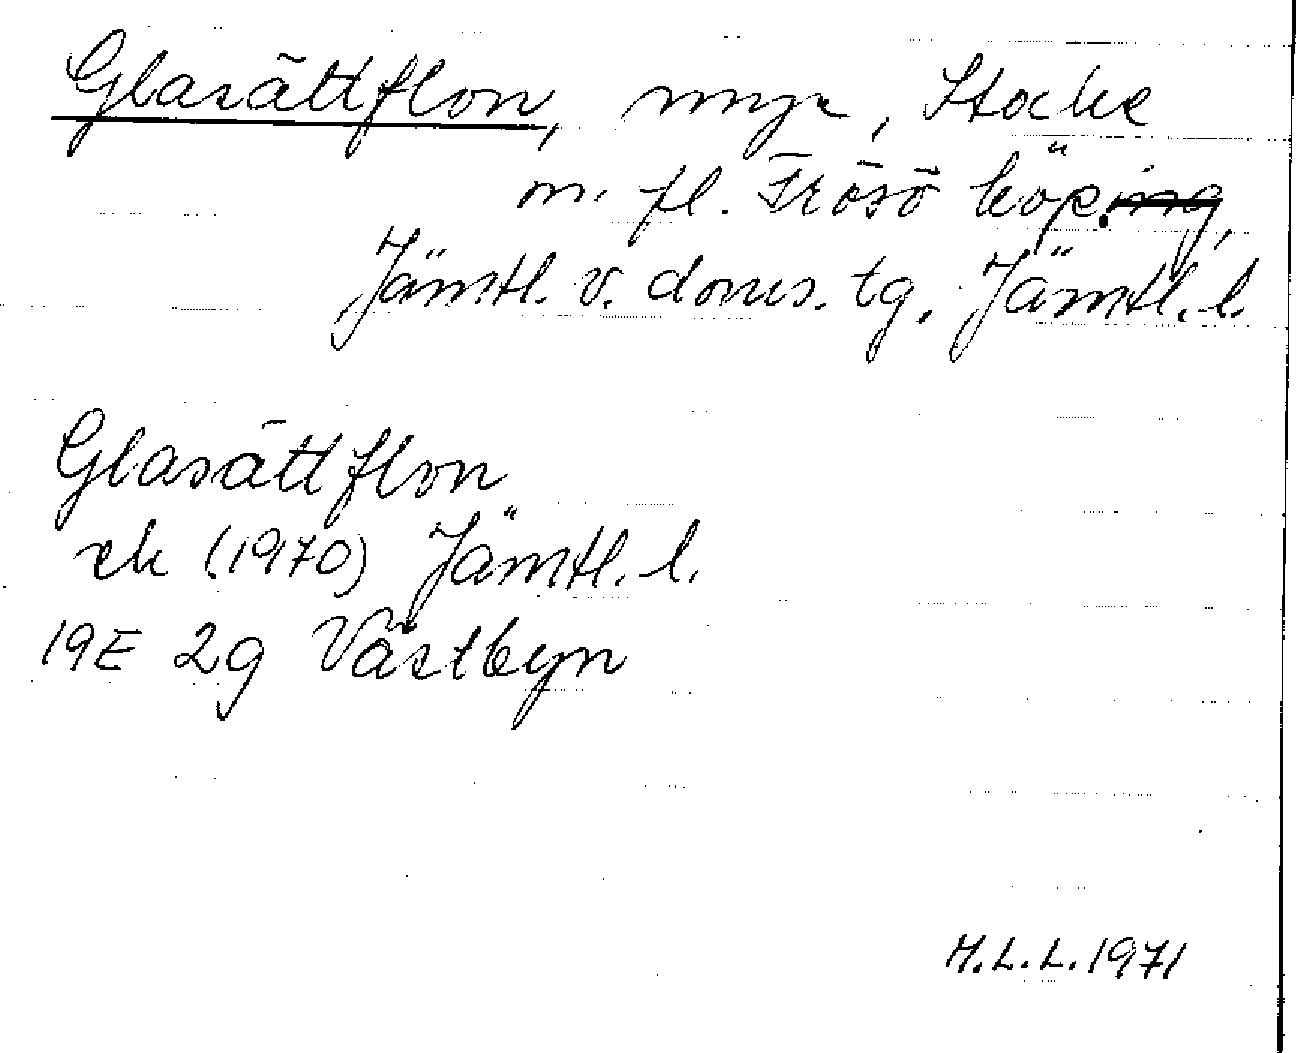 Glasättflon, myr, Stocke
m. fl. Frösö köp.
Jämtl. v. doms. tg. Jämtl. l.
Glasättflon
ek (1970) Jämtl. l.
19E 2g Västbyn
M.L.L. 1971